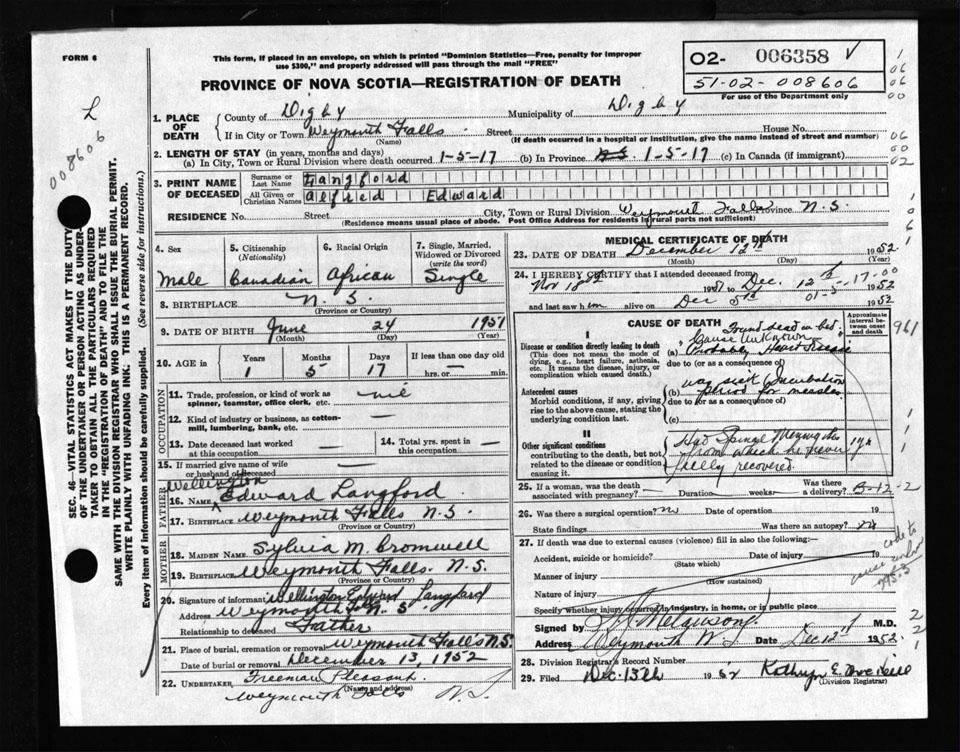 FORM 6
This form, if placed in an envelope, on which is printed "Dominion Statistics—Free, penalty for improper
use $300," and properly addressed will pass through the mail "FREE"
PROVINCE OF NOVA SCOTIA—REGISTRATION OF DEATH
O2- 006358 V
51-02-008606
For use of the Department only
L
008606
SEC. 46—VITAL STATISTICS ACT MAKES IT THE DUTY
OF THE UNDERTAKER OR PERSON ACTING AS UNDER-
TAKER TO OBTAIN ALL THE PARTICULARS REQUIRED
IN THE "REGISTRATION OF DEATH" AND TO FILE THE
SAME WITH THE DIVISION REGISTRAR WHO SHALL ISSUE THE BURIAL PERMIT.
WRITE PLAINLY WITH UNFADING INK. THIS IS A PERMANENT RECORD.
Every item of information should be carefully supplied. (See reverse side for instructions.)
1. PLACE OF DEATH County of Digby Municipality of Digby
If in City or Town Weymouth Falls Street House No.
(Name) (If death occurred in a hospital or institution, give the name instead of street and number)
2. LENGTH OF STAY (in years, months and days)
(a) In City, Town or Rural Division where death occurred 1-5-17 (b) In Province N.S. 1-5-17 (c) In Canada (if immigrant)
3. PRINT NAME OF DECEASED Surname or Last Name Langford
All Given or Christian Names Alfred Edward
RESIDENCE No. Street City, Town or Rural Division Weymouth Falls Province N.S.
(Residence means usual place of abode. Post Office Address for residents in rural parts not sufficient)
4. Sex Male
5. Citizenship (Nationality) Canadian
6. Racial Origin African
7. Single, Married, Widowed or Divorced (write the word) Single
8. BIRTHPLACE N.S.
(Province or Country)
9. DATE OF BIRTH June 24 1951
(Month) (Day) (Year)
10. AGE IN Years Months Days If less than one day old
1 5 17 hrs. or min.
OCCUPATION
11. Trade, profession, or kind of work as
spinner, teamster, office clerk, etc. nil
12. Kind of industry or business, as cotton-
mill, lumbering, bank, etc. —
13. Date deceased last worked
at this occupation
14. Total yrs. spent in
this occupation —
15. If married give name of wife
or husband of deceased —
FATHER
Wellington
16. NAME Edward Langford
17. BIRTHPLACE Weymouth Falls N.S.
(Province or Country)
MOTHER
18. MAIDEN NAME Sylvia M. Cromwell
19. BIRTHPLACE Weymouth Falls. N.S.
(Province or Country)
20. Signature of informant Wellington Edward Langford
Address Weymouth N.S.
Relationship to deceased Father
21. Place of burial, cremation or removal Weymouth Falls N.S.
Date of burial or removal December 13, 1952
22. UNDERTAKER Freeman Pleasant
(Name and address)
Weymouth Falls N.S.
MEDICAL CERTIFICATE OF DEATH
23. DATE OF DEATH December 12th 1952
(Month) (Day) (Year)
24. I HEREBY CERTIFY that I attended deceased from
Nov 18th 1951 to Dec. 1952
01-5-17-00
and last saw him alive on Dec 5th 1952
CAUSE OF DEATH Found dead in bed,
Approximate interval between onset and death
Cause Unknown
Disease or condition directly leading to death (a) Probably Heart Disease
(This does not mean the mode of
dying, e.g., heart failure, asthenia,
etc. It means the disease, injury, or
complication which caused death.)
due to (or as a consequence of)
Antecedent causes
Morbid conditions, if any, giving
rise to the above cause, stating the
underlying condition last.
(b) was sixth incubation
period for measles
due to (or as a consequence of)
(c)
II
Other significant conditions
contributing to the death, but not
related to the disease or condition
causing it.
Had Spinal
from which he never
fully recovered.
1 yr
961
25. If a woman, was the death
associated with pregnancy? — Duration weeks Was there
a delivery? B-12-2
26. Was there a surgical operation? no Date of operation 19
State findings Was there an autopsy? no
27. If death was due to external causes (violence) fill in also the following:
Accident, suicide or homicide? Date of injury 19
(State which)
Manner of injury
(How sustained)
Nature of injury
Specify whether injury occurred in industry, in home, or in public place
code to
cause unknown
795.3
Signed by M.D.
Address Weymouth N.S. Date Dec 12th 1952
28. Division Registrar's Record Number
29. Filed Dec. 13th 1952 Kathryn E.
(Division Registrar)